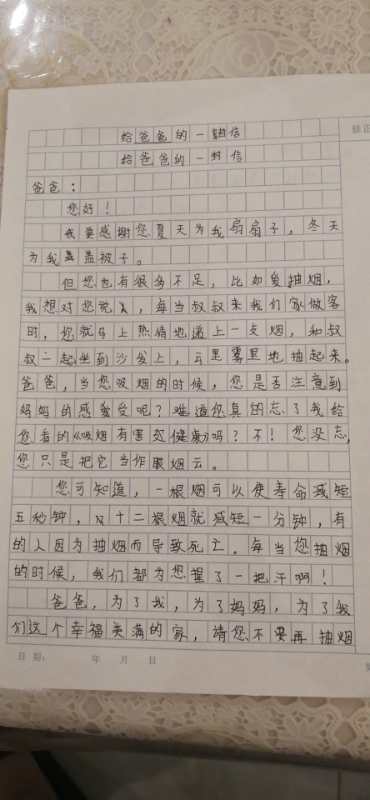 给爸爸的一封信
给爸爸的一封信
爸爸：
您好！
我要感谢您夏天为我扇扇子，冬天
为我盖盖被子。
但您也有很多不足，比如爱抽烟，
我想对您说，每当叔叔来我们家做客
时，您就马上热情地递上一支烟，和叔
叔一起坐到沙发上，云里雾里地抽起来。
爸爸，当您吸烟的时候，您是否注意到
妈妈的感受呢？难道您真的忘了我给
您看的《吸烟有害健康》吗？不！您没忘，
您只是把它当作眼烟云。
您可知道，一根烟可以使寿命减短
五秒钟，十二根烟就减短一分钟，有
的人因为抽烟而导致死亡。每当您抽烟
的时候，我们都为您捏了一把汗啊！
爸爸，为了我，为了妈妈，为了我
们这个幸福美满的家，请您不要再抽烟
日期： 年 月 日